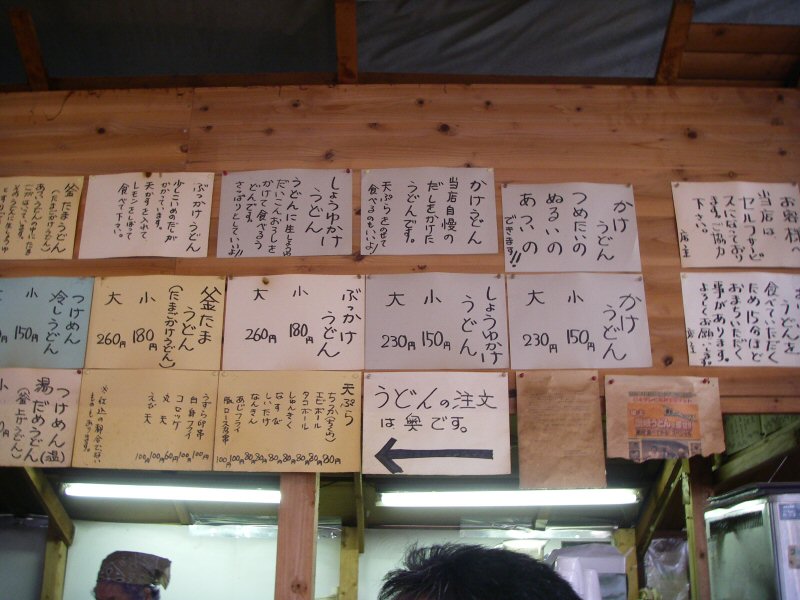 お客様へ
当店は
セルフサービ
スになっており
ます。ご協力
下さい。
店主
かけ
うどん
つめたいの
ぬるいの
あついの
できます!!
かけうどん
当店自慢の
だしをかけた
うどんです。
天ぷらをのせて
食べるのもいいよ!
しょうゆかけ
うどん
うどんに生しょうゆ
だいこんおろしを
かけて食べるう
どんです。
さっぱりとしていいよ!
ぶっかけうどん
少しこいめのだしが
かかっています。
天かすを入れて
レモンをしぼって
食べて下さい。
釜たまうどん
(たまごかけうどん)
うどんを
食べていただく
おまちいただく
ため15分ほど
事があります。
よろしくお願い
店主
かけ
うどん
小 150円
大 230円
しょうゆかけ
うどん
小 150円
大 230円
ぶっかけ
うどん
小 180円
大 260円
釜たま
うどん
(たまごかけうどん)
小 180円
大 260円
つけめん
冷しうどん
小 150円
うどんの注文
は奥です。
天ぷら
ちくわ(ちくら) 80円
エビボール 80円
タコボール 80円
しゅんぎく 80円
なすび 80円
しいたけ 80円
なんきん 80円
あじフライ 100円
豚ロース串 100円
うずら卵串 100円
白身フライ 100円
コロッケ 60円
丸天 100円
えび天 100円
※仕込の都合でない
ものもあります。
つけめん(温)
湯だめうどん
(釜上げうどん)
小